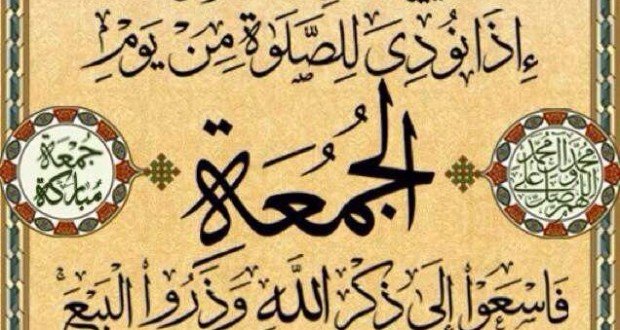 إِذَا نُودِىَ لِلصَّلَوٰةِ مِنْ يَوْمِ
اللهم صل على محمد وآل محمد
الْجُمُعَةِ
جمعة
مباركة
فَاسْعَوْا إِلَىٰ ذِكْرِ اللَّهِ وَذَرُوا الْبَيْعَ